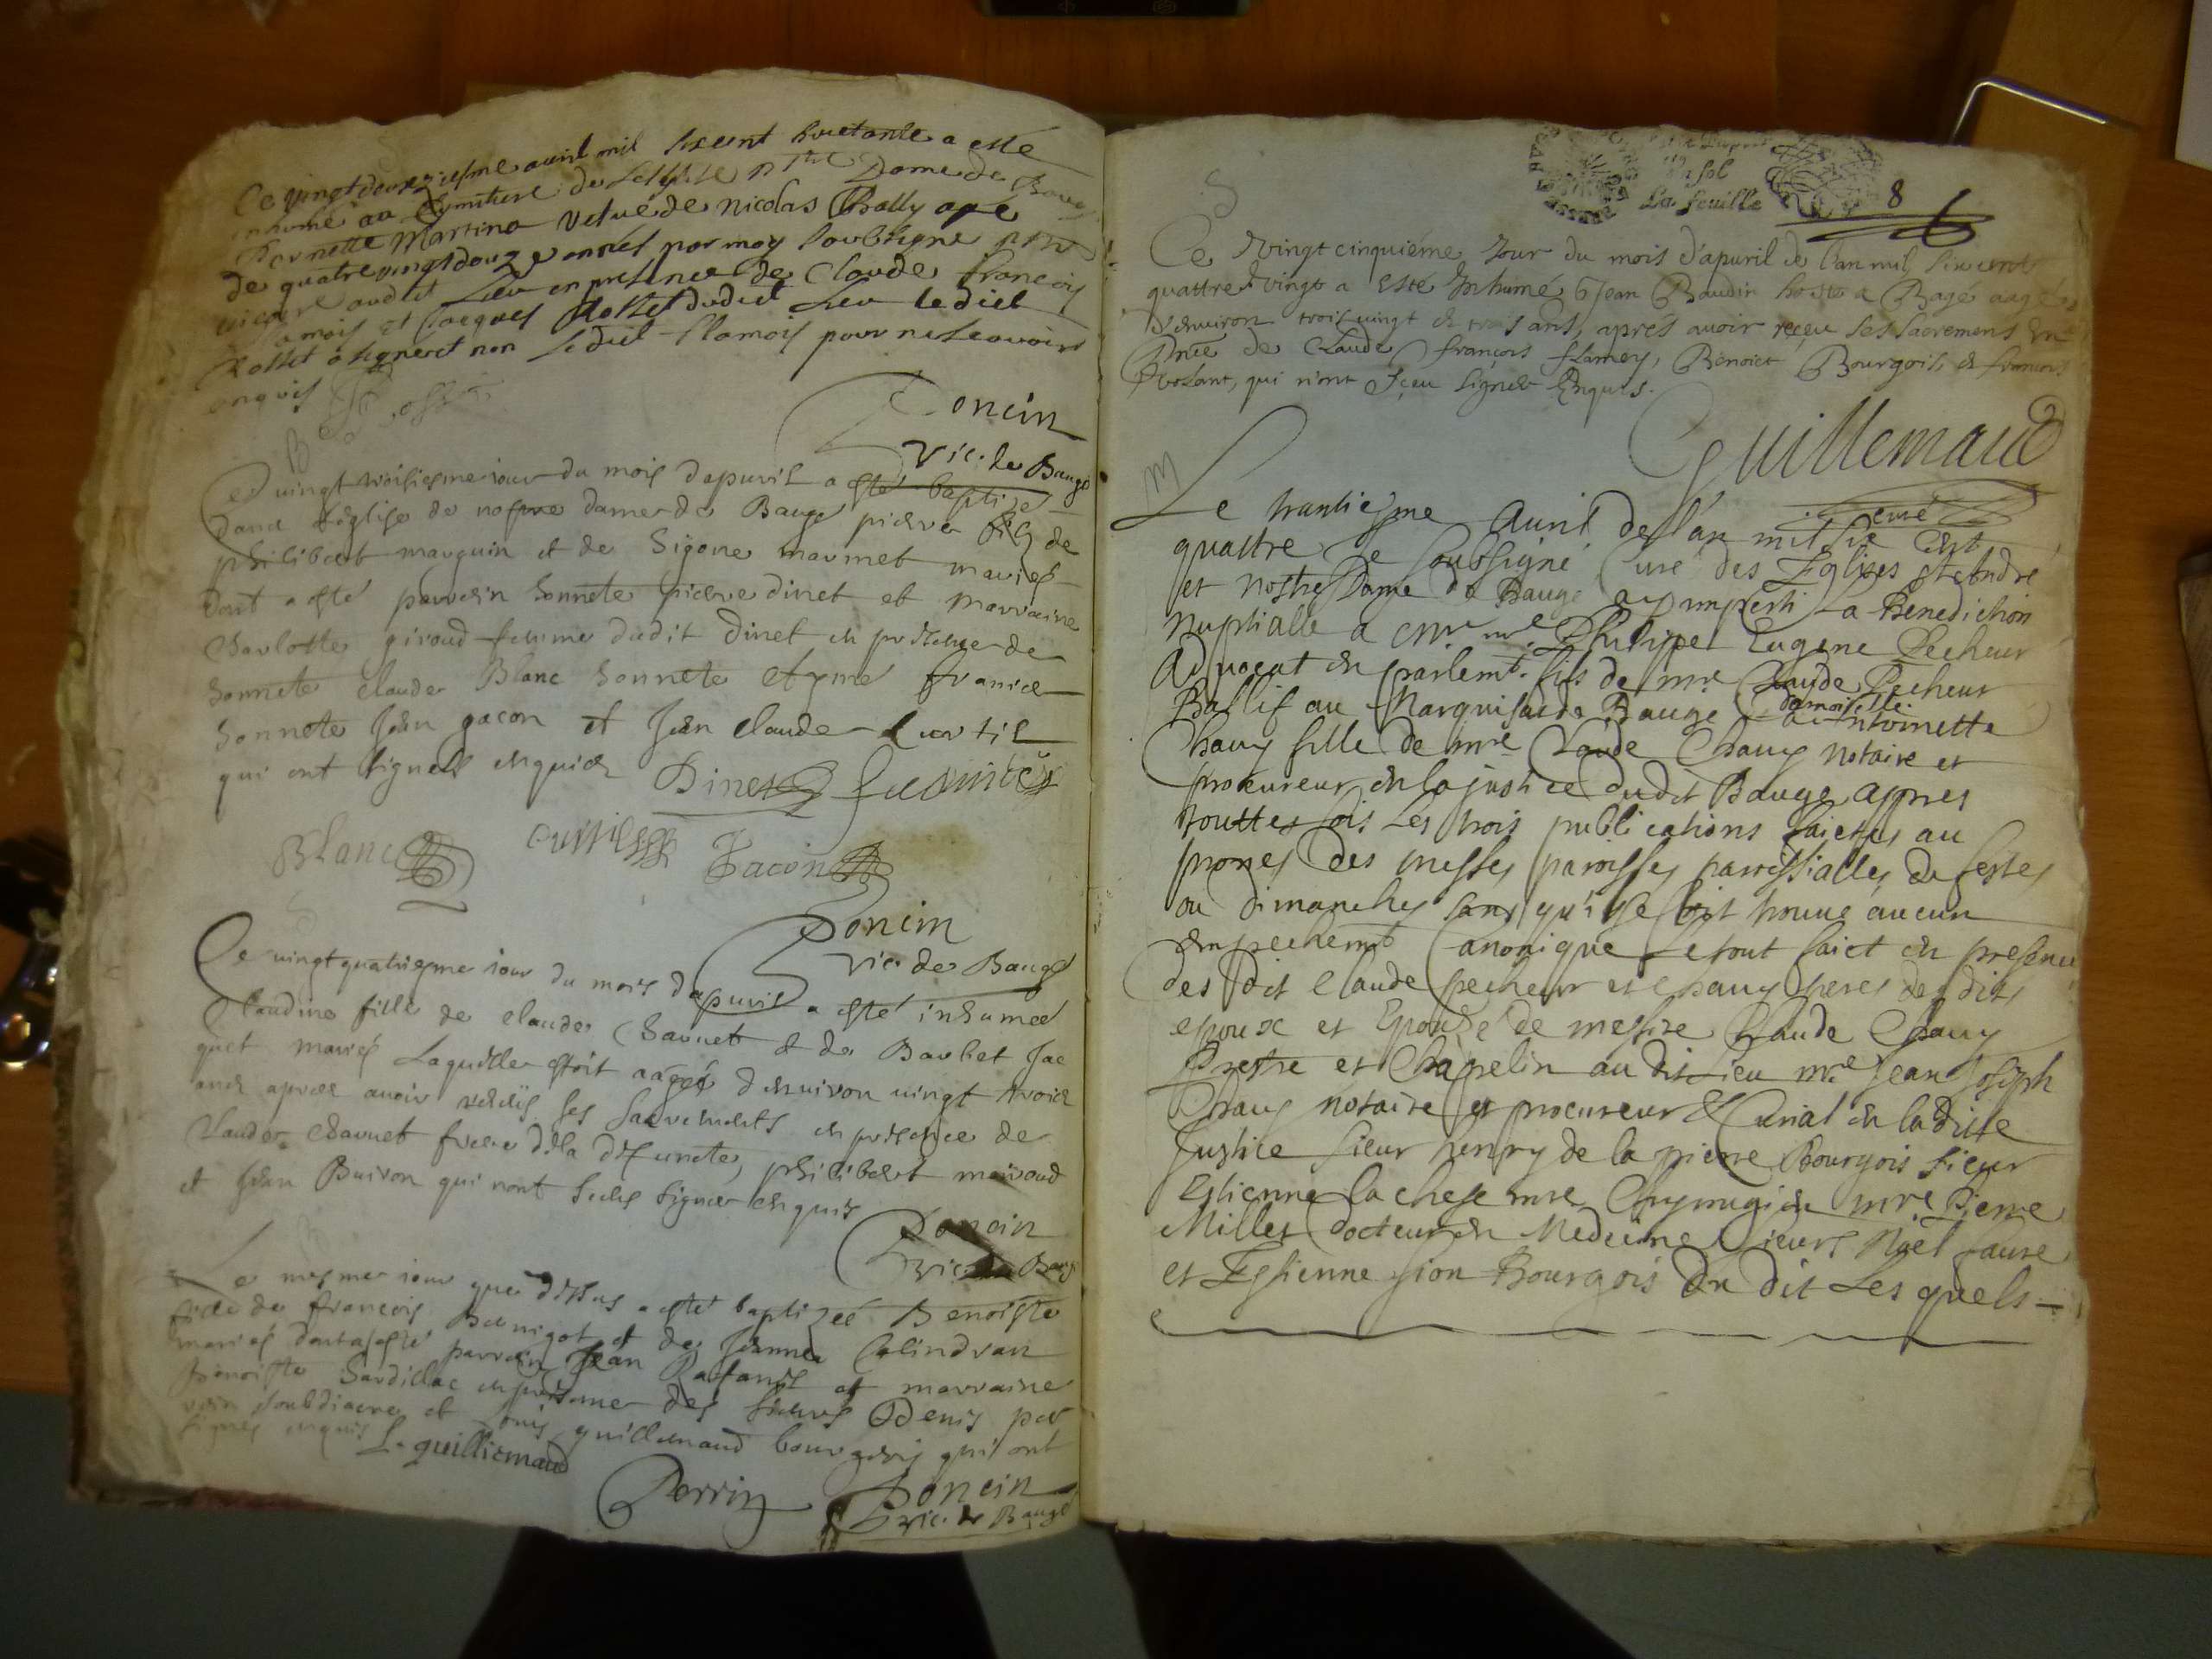 Ce vingt deuxziesme avril mil six cent huictante a esté
inhumé au cymitiere de l'esglise Dame de Baugé
Pernette Martina vefue de nicolas Bally agé
de quatre vingt douze années par moy soubsigné
vicaire audit lieu en presence de Claude francois
flamois et Jacques Rosset dudict lieu ledict
Rosset a signe et non ledict flamois pour ne scavoir
enquis
Rosset
Poncin
vic. de Baugé
Ce vingt troisiesme iour du mois d'apuvril a esté baptizé
dans l'église de nostre dame de Baugé pierre filz de
philibert marguin et de Marmet mariés
dont a esté parrain honneste pierre dinet et marraine
Charlotte giroud femme dudit dinet en presence de
honneste claude Blanc honneste
honneste Jean gacon et Jean claude Curtil
qui ont signés enquis
Dinet
Blanc
Curtil
Gacon
Poncin
vic. de Baugé
Ce vingt quatriesme iour du mois d'apuvril a esté inhumee
Claudine fille de claude Charnet & de Barbet Jac
quet mariés Laquelle estoit aagée d'environ vingt trois
ans apres avoir receus ses sacrements en presence de
Claude Charnet frere de la defuncte, philibert moiroud
et Jean Buiron qui n'ont sceus signer enquis
Poncin
vic. de Baugé
Le mesme iour que dessus a esté baptizeé Benoiste
fille de francois Bernigot et de Jeanne Calindran
mariés dont a esté parrain Jean Pafant et marraine
Benoiste Sardillac en presence des sieurs Denis per
rin soubdiacre et Louis guillemaud bourgeois qui ont
signés enquis
L. guilliemaud
Perrin
Poncin
vic. de Baugé
un sol
La feuille
8
Ce vingt cinquiéme Jour du mois d'apuril de l'an mil six cent
quattre vingt a esté Inhumé Jean Baudin hoste a Bagé aagé
d'environ trois vingt et trois ans, aprés avoir reçeu ses sacremens En
pnce de Claude françois flamey, Benoict Bourgois, et francois
qui n'ont sçeu signer Enquis.
Guillemaud
curé
Le trantiesme Auril de l'an mil six cent
quattre Je soubsigné Curé des Eglises st andré
et nostre Dame de Baugé ay imparti La Benediction
Nuptialle a mre Philipe Eugene Pecheur
Advocat en parlemt. fils de mre Claude Pecheur
Ballif au Marquisat de Baugé & a damoiselle Antoinette
Chauy fille de mre Claude Chauy notaire et
procureur en la justice dudit Bauge appres
touttes fois Les trois publications faictes au
prones des messes paroisses parrissialles de festes
ou dimanches sans qu'il se soit trouué aucun
Empechemt Canonique Le tout faict en presence
des dit Claude pecheur et Chauy peres des dits
epoux et Epouse de messire Claude Chauy
Prestre et Chapelin au dit Lieu mre Jean Joseph
Chauy notaire et procureur & Curial en laditte
Justice sieur henry de la pierre Bourgois sieur
Estienne la chese mre Chyrurgien mre Pierre
Millet docteur en Medecine sieurs Noel faure
et Estienne sion Bourgois du dit Les quels